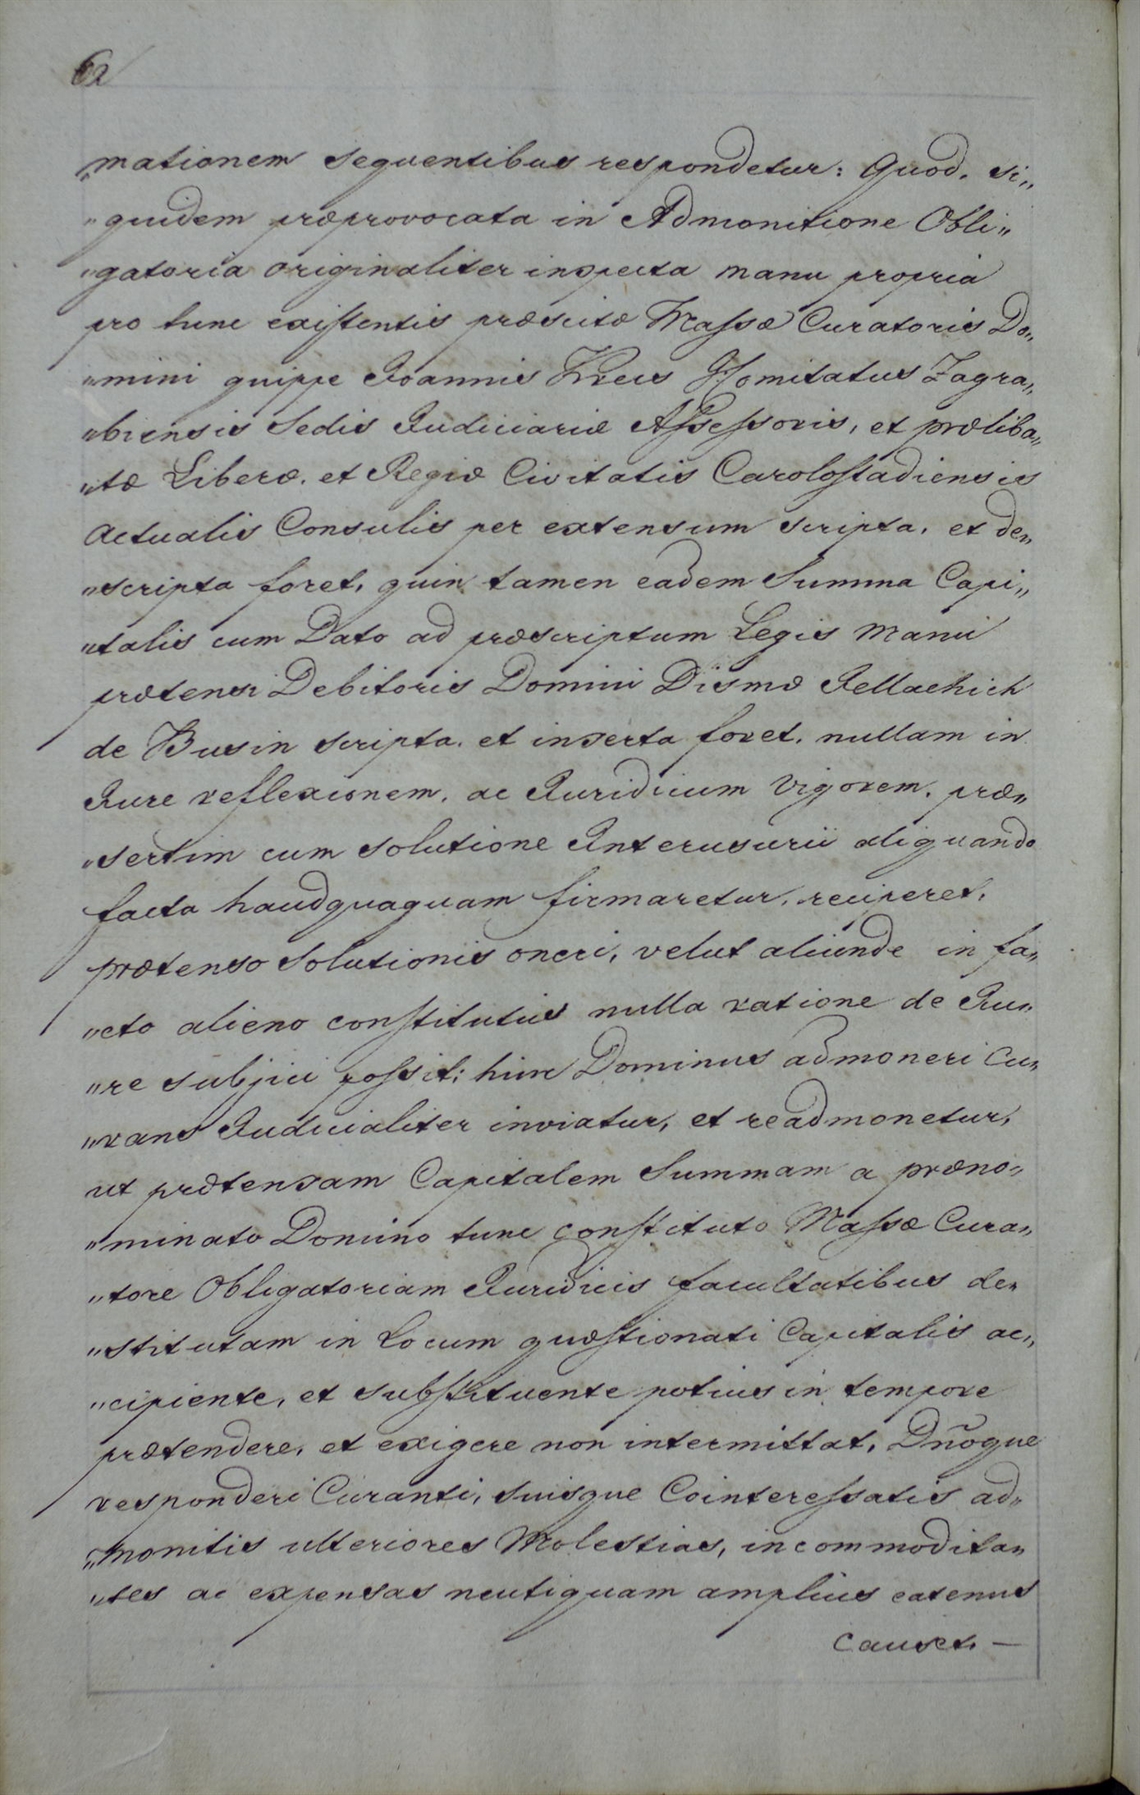 62
„mationem sequentibus respondetur: Quod, si„
„quidem præprovocata in Admonitione Obli„
„gatoria originaliter inspecta manu propria
pro tunc existentis præscitæ Massæ Curatoris Do„
„mini quippe Joannis Comitatus Zagra„
„biensis Sedis Judiciariæ Assessoris, et præliba„
„tæ Liberæ, et Regiæ Civitatis Carolostadiensis
actualis Consulis per extensum scripta, et de„
„scripta foret, quin tamen eadem Summa Capi„
„talis cum Dato ad præscriptum Legis Manu
prætensi Debitoris Domini Dismæ Jellachich
de Busin scripta, et inserta foret, nullam in
Jure reflexionem, ac Juridicum vigorem, præ„
„sertim cum solutione Interusurii aliquando
facta haudquaquam firmaretur, reciperet,
prætenso solutionis oneri, velut aliunde in fa„
„cto alieno constitutus nulla ratione de Ju„
„re subjici possit; hinc Dominus admoneri Cu„
„rans Judicialiter inviatur, et readmonetur,
ut prætensam Capitalem Summam a præno„
„minato Domino tunc constituto Massæ Cura„
„tore Obligatoriam Juridicis facultatibus de„
„stitutam in Locum quæstionati Capitalis ac„
„cipiente, et substituente potius in tempore
prætendere, et exigere non intermittat, Dnõque
responderi Curanti, suisque Cointeressatis ad„
„monitis ulteriores Molestias, incommodita„
„tes ac expensas neutiquam amplius eatenus
Causet. —